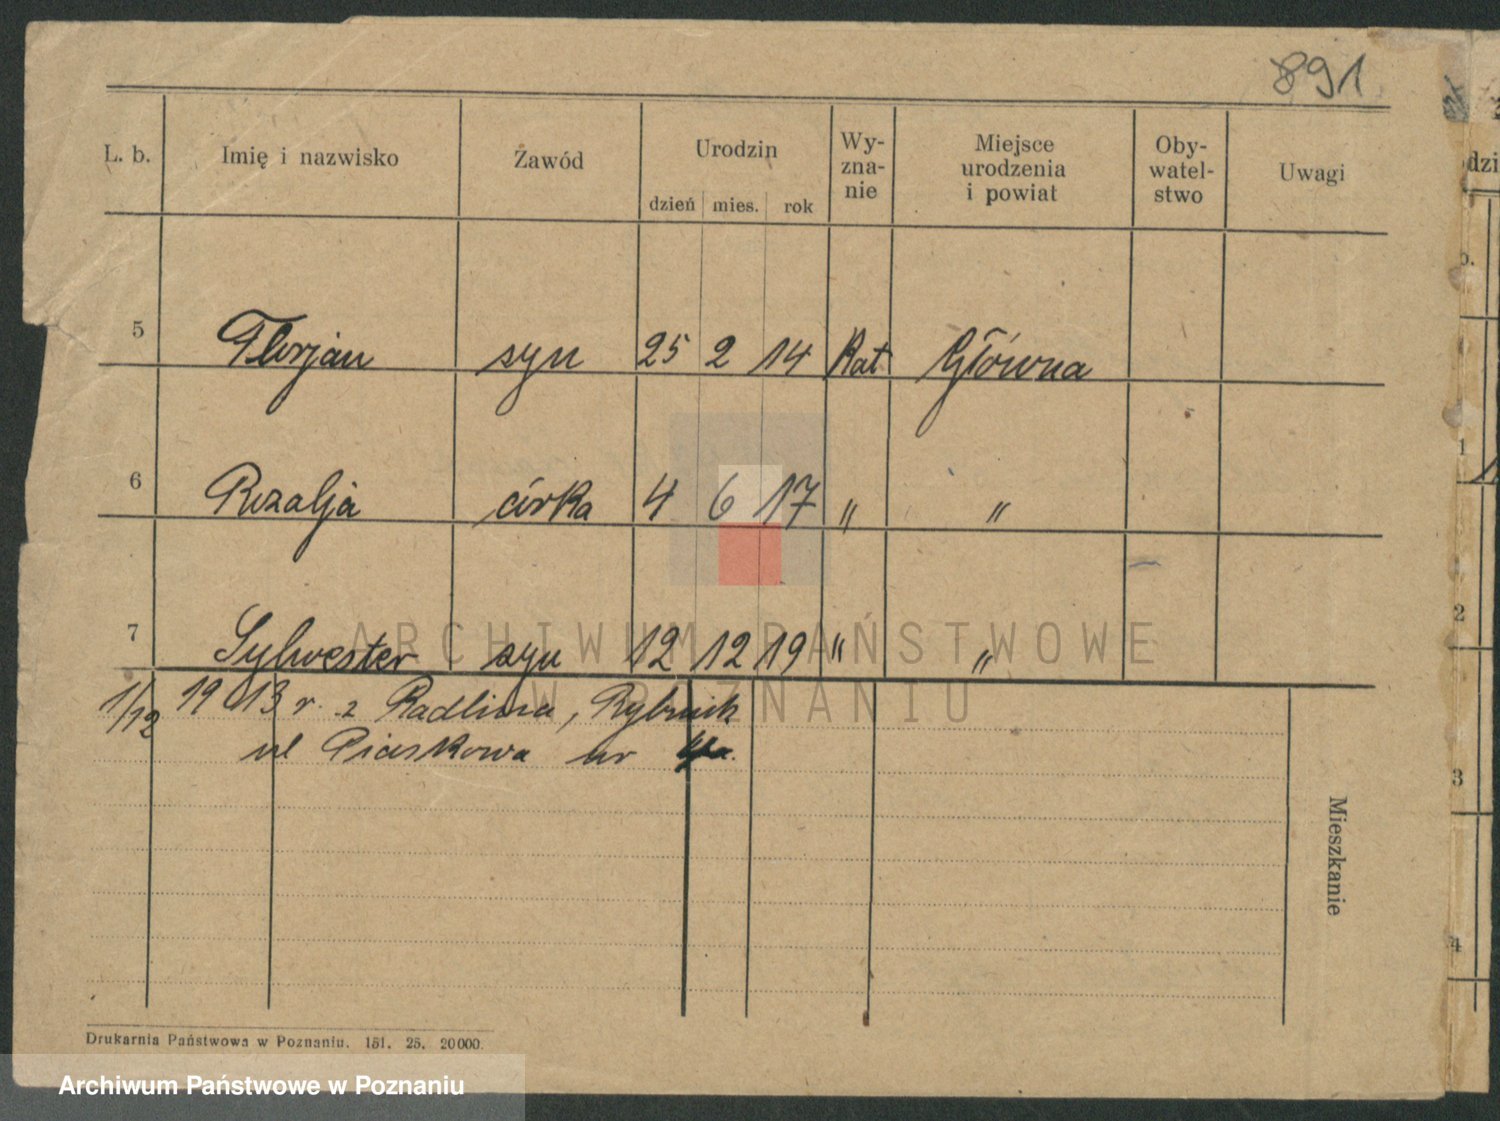 891
L. b. Imię i nazwisko Zawód Urodzin dzień mies. rok Wy-zna-nie Miejsce urodzenia i powiat Oby-watel-stwo Uwagi
5 Florjan syn 25 2 14 Kat Główna
6 Rozalja córka 4 6 17 " "
7 Sylwester syn 12 12 19 " "
ARCHIWUM PAŃSTWOWE
W POZNANIU
1/12 1913 r. z Radlina, Rybnik
ul Piaskowa nr
Mieszkanie
Drukarnia Państwowa w Poznaniu. 151. 25. 20000.
Archiwum Państwowe w Poznaniu
1
2
3
4